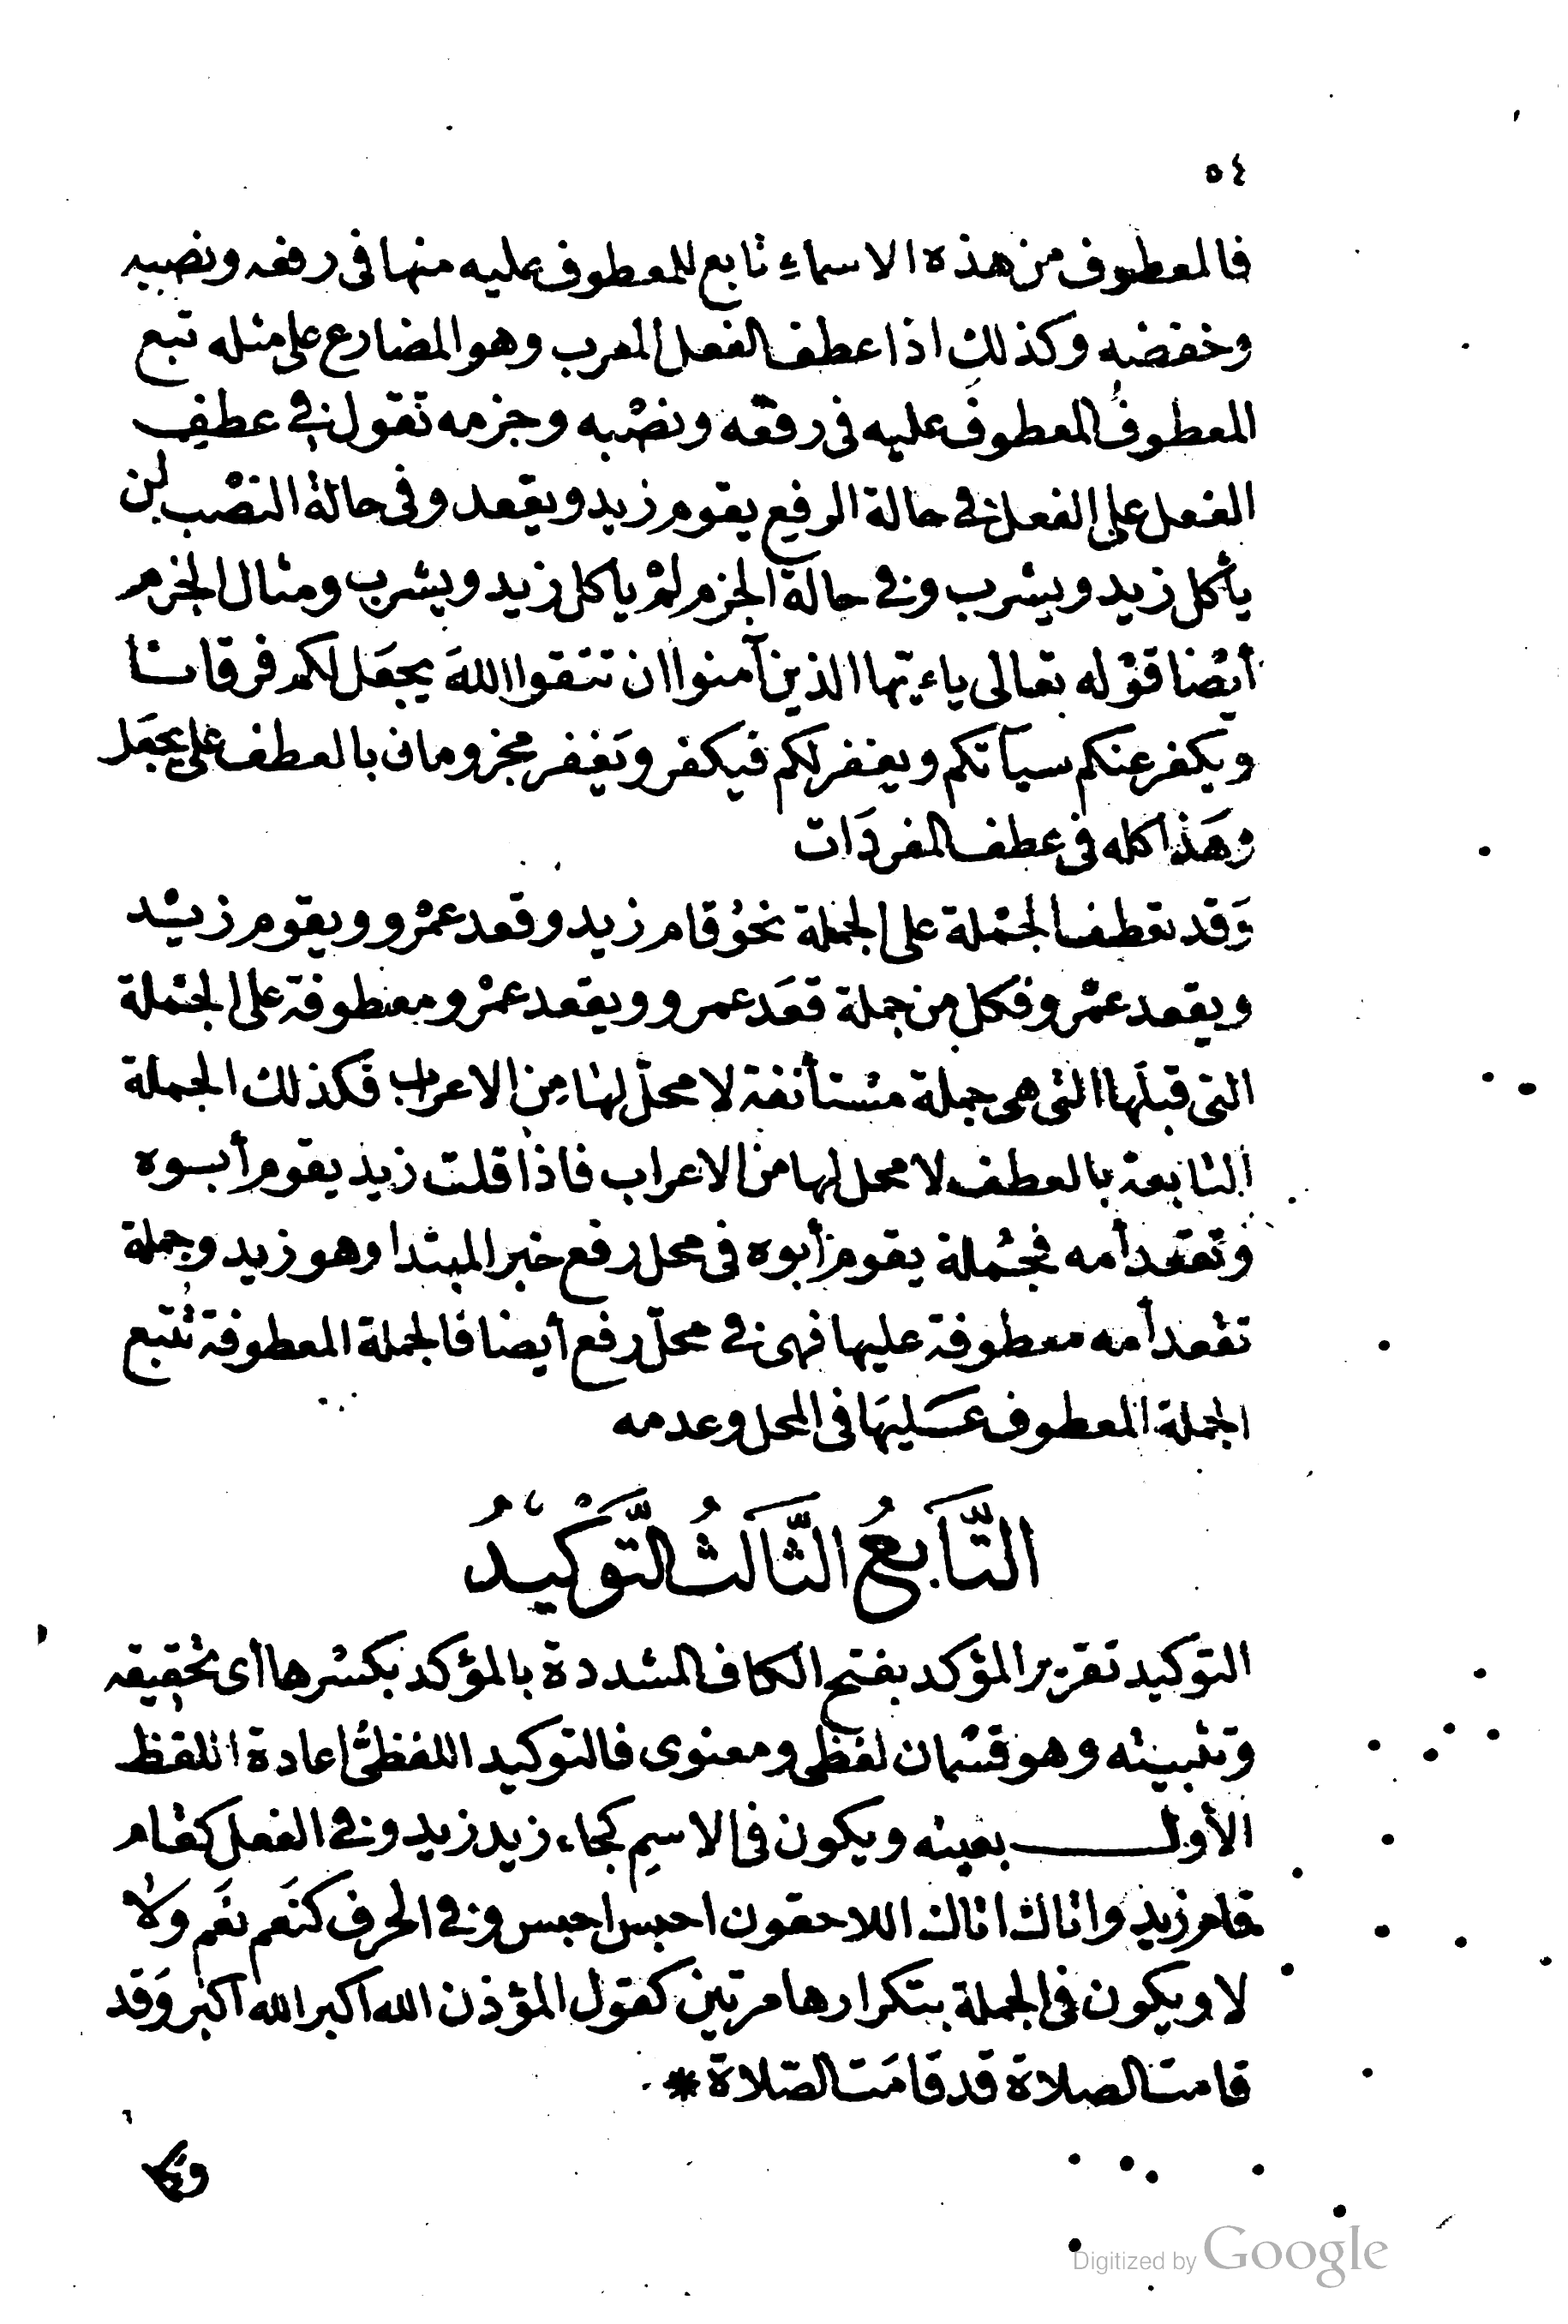 ٥٤
فالمعطوف من هذه الاسماءِ تابع للمعطوف عليه منها فى رفعه ونصبه
وخفضه وكذلك اذا عطف الفعل المعرب وهو المضارع على مثله تبع
المعطوفُ المعطوفَ عليه فى رفعه ونصْبه وجزمه تقول فى عطفِ
الفعل على الفعل فى حالة الرفع يقوم زيد ويقعد وفى حالة النصْب لن
يأكل زيد ويشرب وفى حالة الجزم لمْ ياكل زيد ويشرب ومثال الجزم
أيْضا قوْله تعالى ياءيّها الذين آمنوا ان تتقوا اللهَ يجعَل لكم فرقانا
ويكفر عنكم سيآتكم ويغفر لكم فيكفر ويَغفر مجزومان بالعطف على يجعَل
وهَذا كله فى عطف المفردَات
وَقد تعطف الجمْلة على الجملة نحوُ قام زيد وقعد عمْرو ويقوم زيْد
ويقعد عمْرو فكل من جملة قعَد عمرو ويقعد عمْرو معطوفة على الجمْلة
التى قبلَها التى هى جملة مسْتأنفة لا محلّ لهَا مِن الاعراب فكذلك الجملة
التابعة بالعطف لا محل لها من الاعراب فاذا قلت زيد يقوم أبوه
وتَقعد أمه فجُملة يقوم أبوه فى محل رفع خبر المبتدا وهو زيد وجملة
تقعد أمه معطوفة عليها فهى فى محلّ رفع أيضا فالجملة المعطوفة تُتبع
الجملة المعطوف عَليهَا فى المحل وعدمه
التَّابعُ الثَّالثُ التَّوْكيْدُ
التوكيد تقرير المؤكد بفتح الكاف المشددة بالمؤكد بكسْرها أى تحْقِيقه
وتثبيته وهو قسْمان لفظى ومعنوى فالتوكيد اللفظىُّ اعادة اللفظ
الأول بعينه ويكون فى الاسمِ كجاء زيد زيد وفى الفعل كقام
قام زيد واتاك اتاك اللاحقون احبس احبس وفى الحرف كنَعم نعَم ولَا
لا ويكون فى الجملة بتكرارها مرتين كقول المؤذن الله اكبر الله اكبر وَقد
قامت الصلاة قد قامَت الصّلاة *
وكا
Digitized by Google